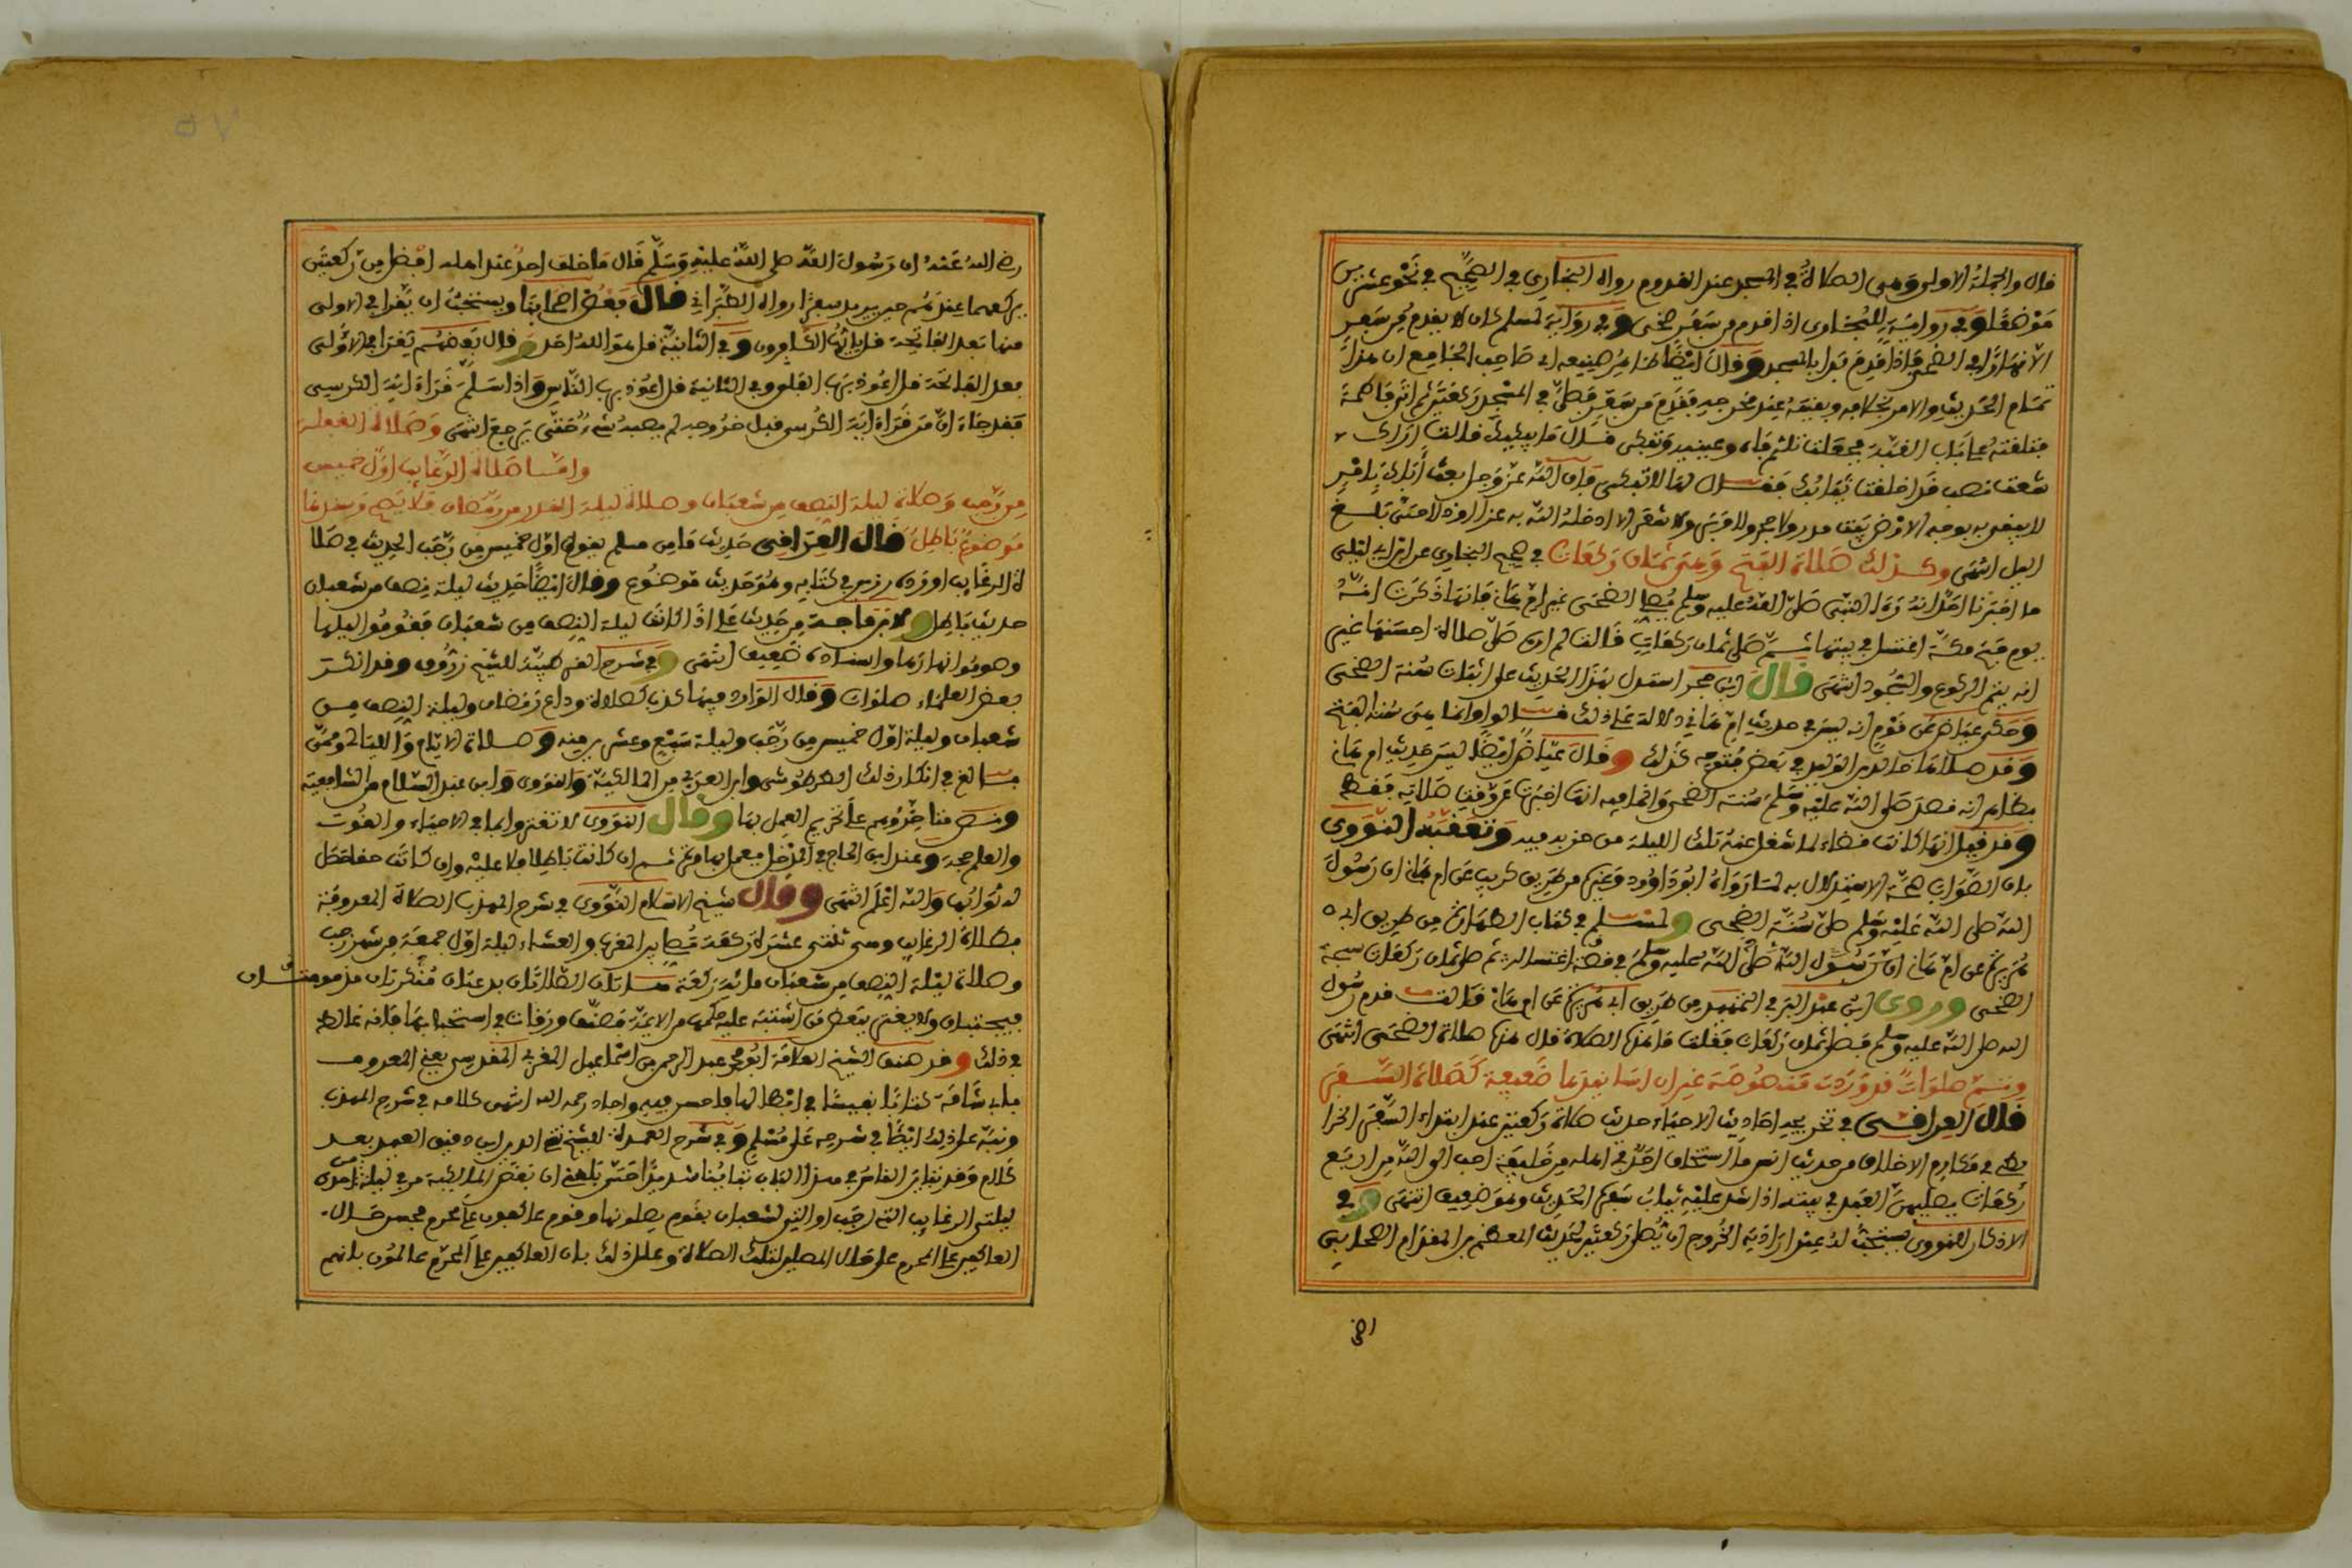 قال والجملة الاولى وهي الصلاة في المسجد عند القدوم رواه البخاري في الصحيح في نحو عشرين
موضعا وفي رواية للبخاري اذا قدم من سفر ضحى وفي رواية لمسلم كان لا يقدم من سفر
الا نهارا في الضحى فاذا قدم بدا بالمسجد وقال ايضا
تمام الحديث والامر بخلافه وبقيته عند مخرجيه فقدم من سفر فصلى في المسجد ركعتين ثم اتى فاطمة
فتلقته على باب القبة فجعلت تلثم فاه وعينيه وتبكي فقال ما يبكيك قالت اراك
شعثا نصبا قد اخلقت ثيابك فقال لها لا تبكي فان الله عز وجل بعث اباك بامر
لا يبقى به بوجه الارض بيت مدر ولا حجر ولا وبر ولا شعر الا ادخله الله به عزا او ذلا حتى يبلغ
الليل انتهى وكذلك صلاة الفتح وهي ثمان ركعات في صحيح البخاري عن ابن ابي ليلى
ما اخبرنا احد انه رءا النبي صلى الله عليه وسلم يصلي الضحى غير ام هانئ فانها ذكرت انه
يوم فتح مكة اغتسل في بيتها ثم صلى ثمان ركعات قالت لم اره صلى صلاة اخف منها غير
انه يتم الركوع والسجود انتهى قال ابن حجر استدل بهذا الحديث على اثبات سنة الضحى
وحكى عياض عن قوم انه ليس في حديث ام هانئ دلالة على ذلك قالوا وانما هي سنة الفتح
وقد صلاها خالد بن الوليد في بعض فتوحه كذلك وقال عياض ايضا ليس حديث ام هانئ
بظاهر انه قصد صلى الله عليه وسلم سنة الضحى وانما فيه انها اخبرت عن وقت صلاته فقط
وقد قيل انها كانت قضاء لما شغل عنه تلك الليلة من حزبه فيه وتعقبه النووي
بان الصواب صحة الاستدلال به لما رواه ابو داوود وغيره من طريق كريب عن ام هانئ ان رسول
الله صلى الله عليه وسلم صلى سبحة الضحى ولمسلم في كتاب الطهارة من طريق ابي
مرة عن ام هانئ ان رسول الله صلى الله عليه وسلم في قصة اغتساله ثم صلى ثمان ركعات سبحة
الضحى وروى ابن عبد البر في التمهيد من طريق ابي مرة عن ام هانئ قالت قدم رسول
الله صلى الله عليه وسلم فصلى ثمان ركعات فقلت ما هذه الصلاة قال هذه صلاة الضحى انتهى
وثم صلوات قد وردت منصوصة غير ان اسانيدها ضعيفة كصلاة السفر
قال العراقي في تخريج احاديث الاحياء حديث صلاة ركعتين عند ابتداء السفر الخرا
ئطي في مكارم الاخلاق من حديث انس ما استخلف احد في اهله من خليفة احب الى الله من اربع
ركعات يصليهن العبد في بيته اذا شد عليه ثياب سفره الحديث وهو ضعيف انتهى وفي
الاذكار للنووي يستحب له عند ارادته الخروج ان يصلي ركعتين لحديث المطعم بن المقدام الصحابي
رضي الله عنه ان رسول الله صلى الله عليه وسلم قال ما خلف احد عند اهله افضل من ركعتين
يركعهما عندهم حين يريد سفرا رواه الطبراني قال بعض اصحابنا ويستحب ان يقرا في الاولى
منها بعد الفاتحة قل يايها الكافرون وفي الثانية قل هو الله احد وقال بعضهم يقرا في الاولى
بعد الفاتحة قل اعوذ برب الفلق وفي الثانية قل اعوذ برب الناس واذا سلم قراة اية الكرسي
فقد جاء ان من قرا اية الكرسي قبل خروجه لم يصبه شيء حتى يرجع انتهى وصلاة الغفلة
واما صلاة الرغايب اول خميس
من رجب وصلاة ليلة النصف من شعبان وصلاة ليلة القدر من رمضان فلا يصح وسندها
موضوع باطل قال العراقي حديث ما من مسلم يصوم اول خميس من رجب الحديث في صلا
ة الرغايب اورده رزين في كتابه وهو حديث موضوع وقال ايضا حديث ليلة نصف من شعبان
حديث باطل ولابن ماجة من حديث علي اذا كانت ليلة النصف من شعبان فقوموا ليلها
وصوموا نهارها واسناده ضعيف انتهى وفي شرح للشيخ زروق وقد انكر
بعض العلماء صلوات وقال الوارد فيها كذب كصلاة وداع رمضان وليلة النصف من
شعبان وليلة اول خميس من رجب وليلة سبع وعشرين منه وصلاة الايام والليالي وممن
بالغ في انكار ذلك الطرطوشي وابن العربي من المالكية والنووي وابن عبد السلام من الشافعية
ونص متاخروهم على تحريم العمل بها وقال النووي لا تغتروا بما في الاحياء والقوت
والعلم حجة وعند ابن الحاج في المدخل
له ثوابها والله اعلم انتهى وقال شيخ الاسلام النووي في شرح المهذب الصلاة المعروفة
بصلاة الرغايب وهي ثنتى عشرة ركعة تصلى بين المغرب والعشاء ليلة اول جمعة من شهر رجب
وصلاة ليلة النصف من شعبان مائة ركعة هاتان الصلاتان بدعتان منكرتان مذمومتان
فيجتنبان ولا يغتر ببعض من اشتبه عليه حكمها من الايمة فصنف ورقات في استحبابها فانه غالط
في ذلك وقد صنف الشيخ العلامة ابو محمد عبد الرحمن بن اسماعيل المغربي المقدسي يعني المعروف
بابي شامة كتابا نفيسا في ابطالها فاحسن فيه واجاد رحمه الله انتهى كلامه في شرح المهذب
ونبه على ذلك ايضا في شرحه على مسلم وفي شرح العمدة للشيخ تقي الدين ابن دقيق العيد بعد
كلام وقد تباين الناس في هذا الباب تباينا شديدا حتى بلغني ان بعض المالكية مر في ليلة من احدى
ليلتي الرغايب التي لرجب او التي لشعبان بقوم يصلونها وقوم عاكفين على محرم فحسن حال
العاكفين على المحرم على حال المصلين لتلك الصلاة وعلل ذلك بان العاكفين على المحرم عالمون بانهم